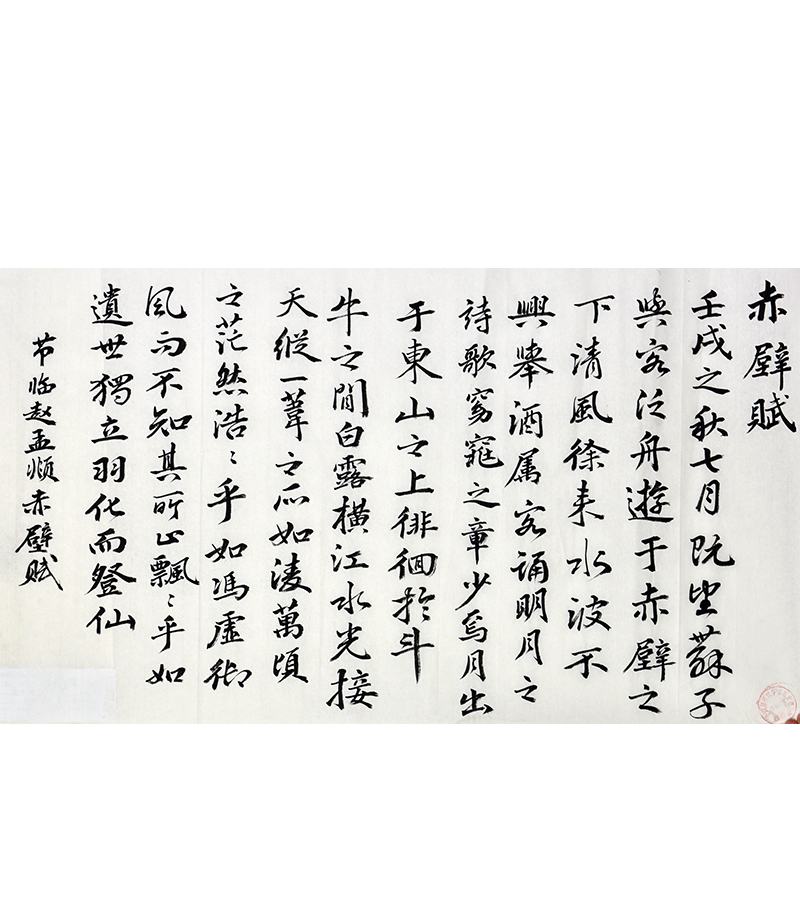 赤壁賦
壬戌之秋七月既望蘇子
與客泛舟遊于赤壁之
下清風徐来水波不
興舉酒属客誦明月之
詩歌窈窕之章少焉月出
于東山之上徘徊於斗
牛之間白露横江水光接
天縱一葦之所如淩萬頃
之茫然浩〻乎如馮虚御
风而不知其所止飄〻乎如
遺世獨立羽化而登仙
节临赵孟頫赤壁赋